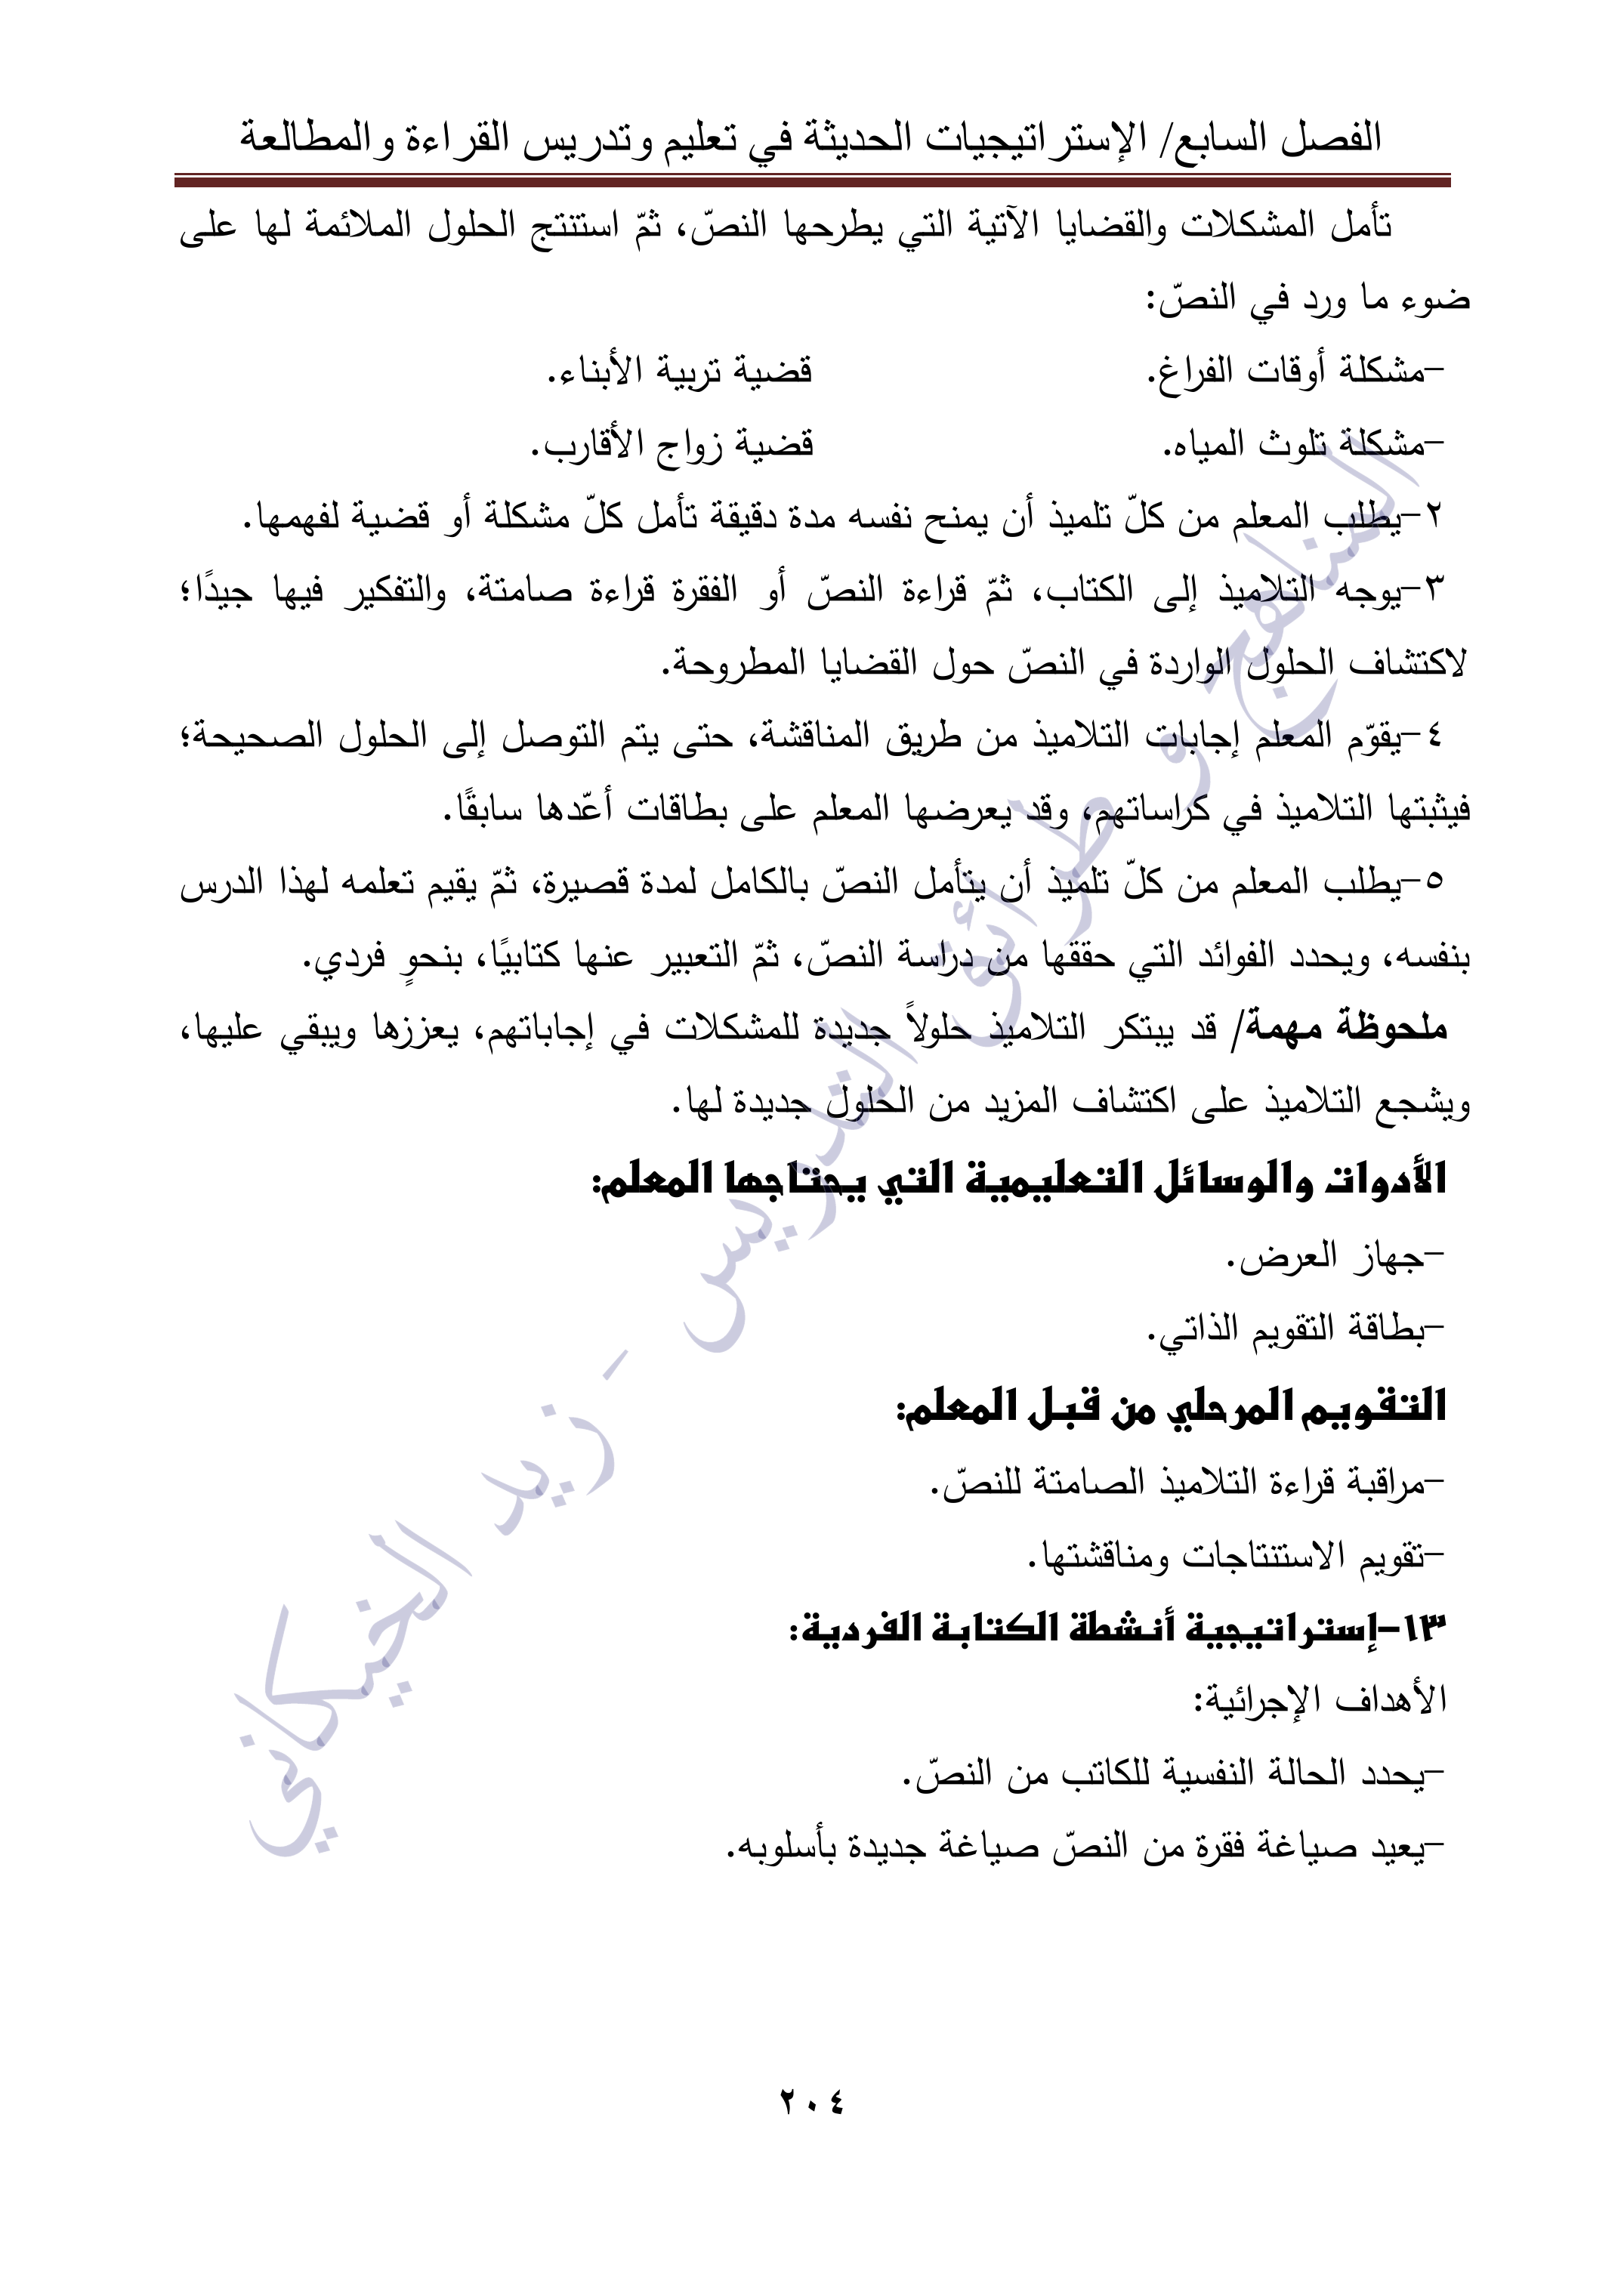 الفصل السابع/ الإستراتيجيات الحديثة في تعليم وتدريس القراءة والمطالعة
تأمل المشكلات والقضايا الآتية التي يطرحها النصّ، ثمّ استنتج الحلول الملائمة لها على
ضوء ما ورد في النصّ:
-مشكلة أوقات الفراغ. قضية تربية الأبناء.
-مشكلة تلوث المياه. قضية زواج الأقارب.
٢-يطلب المعلم من كلّ تلميذ أن يمنح نفسه مدة دقيقة تأمل كلّ مشكلة أو قضية لفهمها.
٣-يوجه التلاميذ إلى الكتاب، ثمّ قراءة النصّ أو الفقرة قراءة صامتة، والتفكير فيها جيدًا؛
لاكتشاف الحلول الواردة في النصّ حول القضايا المطروحة.
٤-يقوّم المعلم إجابات التلاميذ من طريق المناقشة، حتى يتم التوصل إلى الحلول الصحيحة؛
فيثبتها التلاميذ في كراساتهم، وقد يعرضها المعلم على بطاقات أعّدها سابقًا.
٥-يطلب المعلم من كلّ تلميذ أن يتأمل النصّ بالكامل لمدة قصيرة، ثمّ يقيم تعلمه لهذا الدرس
بنفسه، ويحدد الفوائد التي حققها من دراسة النصّ، ثمّ التعبير عنها كتابيًا، بنحوٍ فردي.
ملحوظة مهمة/ قد يبتكر التلاميذ حلولاً جديدة للمشكلات في إجاباتهم، يعززها ويبقي عليها،
ويشجع التلاميذ على اكتشاف المزيد من الحلول جديدة لها.
الأدوات والوسائل التعليمية التي يحتاجها المعلم:
-جهاز العرض.
-بطاقة التقويم الذاتي.
التقويم المرحلي من قبل المعلم:
-مراقبة قراءة التلاميذ الصامتة للنصّ.
-تقويم الاستنتاجات ومناقشتها.
١٣-إستراتيجية أنشطة الكتابة الفردية:
الأهداف الإجرائية:
-يحدد الحالة النفسية للكاتب من النصّ.
-يعيد صياغة فقرة من النصّ صياغة جديدة بأسلوبه.
٢٠٤
المناهج و طرائق التدريس - زيد الخيكاني